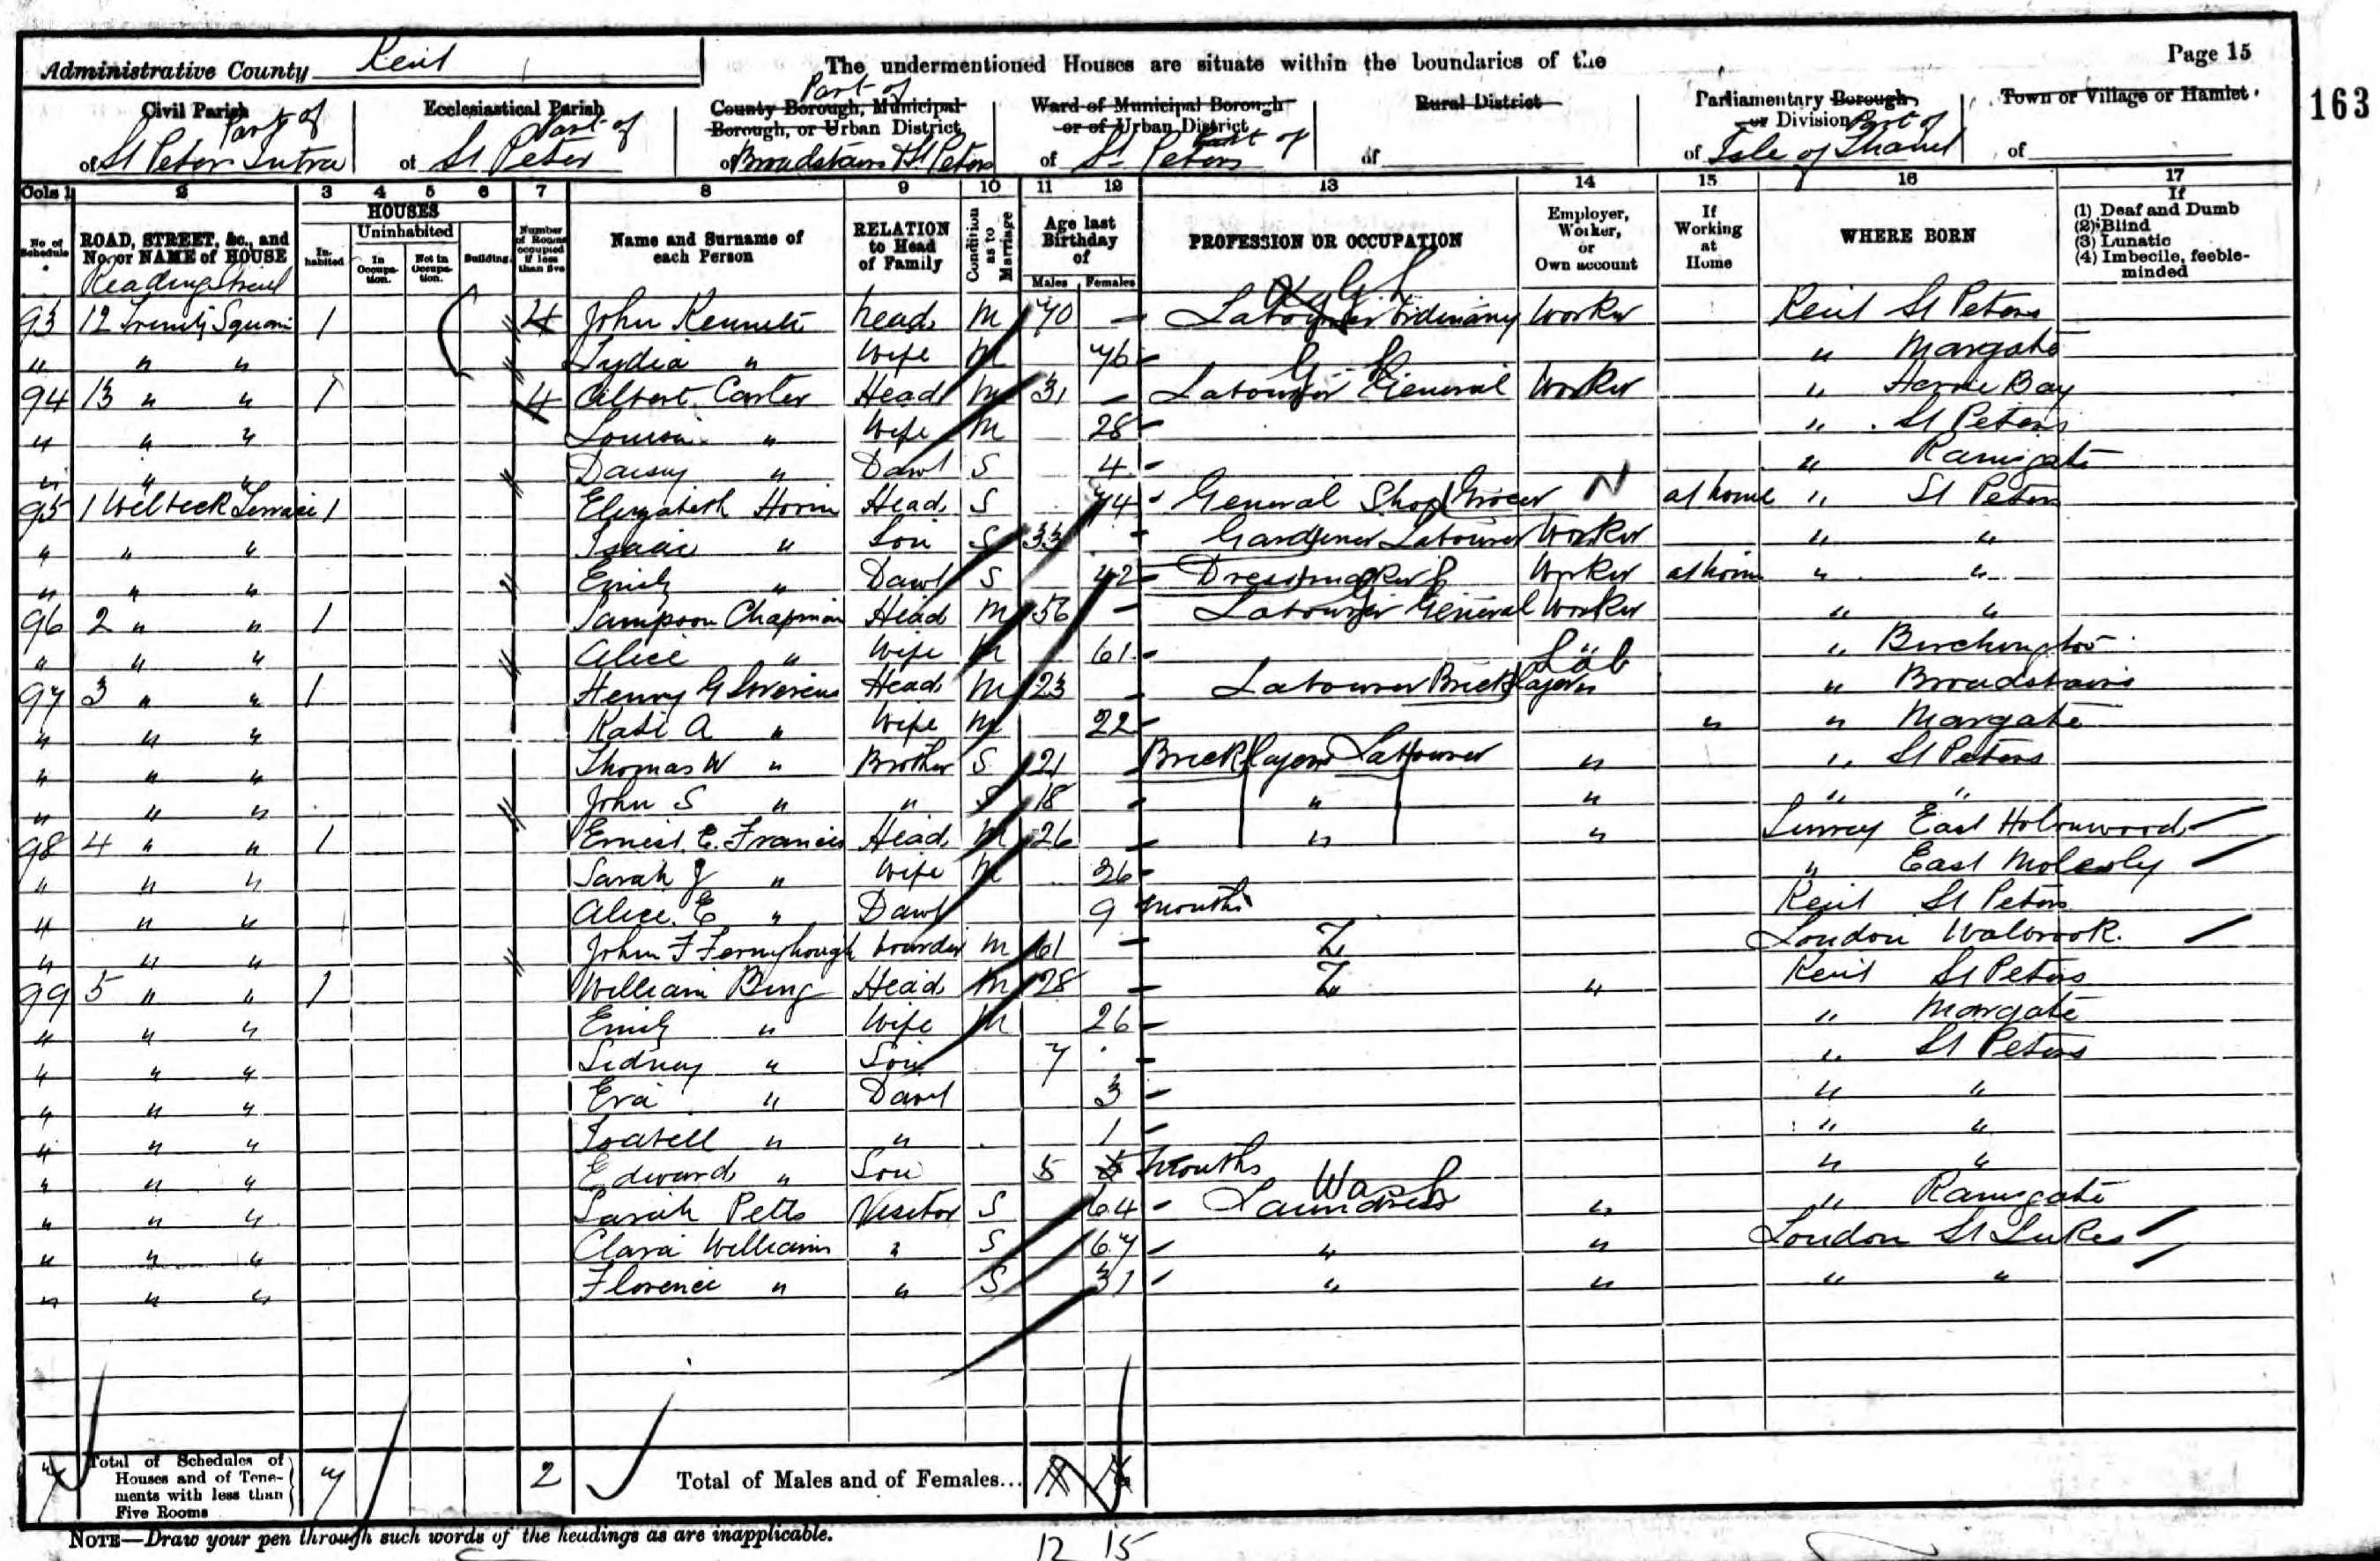 Page 15
163
Administrative County Kent
The undermentioned Houses are situate within the boundaries of the
Civil Parish Part of
of St Peter Intra
Ecclesiastical Parish Part of
of St Peter
Part of
County Borough, Municipal Borough, or Urban District
of Broadstairs & St Peters
Ward of Municipal Borough or of Urban District Part of
of St Peters
Rural District
of
Parliamentary Borough or Division Part of
of Isle of Thanet
Town or Village or Hamlet
of
Cols 1 2 3 4 5 6 7 8 9 10 11 12 13 14 15 16 17
No of Schedule
ROAD, STREET, &c., and No. or NAME of HOUSE
HOUSES
Inhabited
Uninhabited
In Occupation.
Not in Occupation.
Building.
Number of Rooms occupied if less than five
Name and Surname of each Person
RELATION to Head of Family
Condition as to Marriage
Age last Birthday of
Males Females
PROFESSION OR OCCUPATION
Employer, Worker, or Own account
If Working at Home
WHERE BORN
If
(1) Deaf and Dumb
(2) Blind
(3) Lunatic
(4) Imbecile, feeble-minded
Reading Street
93 12 Trinity Square 1 4 John Kennett head M 70 - Labourer Ordinary Worker Kent St Peters
" " " Lydia " Wife M 76 - " Margate
94 13 " " 1 4 Albert Carter Head M 31 - Labourer General Worker " Herne Bay
" " " Louisa " Wife M 28 - " St Peters
" " " Daisy " Dawt S 4 - " Ramsgate
95 1 Welbeck Terrace 1 Elizabeth Head S 74 - General Shop Grocer N at home " St Peters
" " " Isaac " Son S 33 - Gardener Labourer Worker " "
" " " Emily " Dawt S 42 - Dressmaker Worker at home " "
96 2 " " 1 Sampson Chapman Head M 56 - Labourer General Worker " "
" " " Alice " Wife M 61 - " " Birchington
97 3 " " 1 Henry G Head M 23 - Labourer Bricklayers Lab " " Broadstairs
" " " Kate A " Wife M 22 - " " Margate
" " " Thomas W " Brother S 21 Bricklayers Labourer " " St Peters
" " " John S " " S 18 - " " " "
98 4 " " 1 Ernest E. Francis Head M 26 - " " Surrey East Holmwood
" " " Sarah J " Wife M 26 - " East Molesly
" " " Alice. E " Dawt 9 months Kent St Peters
" " " John F Fernyhough boarder M 61 - London Walbrook.
99 5 " " 1 William Bing Head M 28 - " Kent St Peters
" " " Emily " Wife M 26 - " Margate
" " " Sidney " Son 7 - " St Peters
" " " Eva " Dawt 3 - " "
" " " Isabell " " 1 - " "
" " " Edward " Son 5 months " "
" " " Sarah Petts Visitor S 64 - Laundress Wash " " Ramsgate
" " " Clara Williams " S 67 - " " London St Lukes
" " " Florence " " S 31 - " " " "
7 Total of Schedules of Houses and of Tenements with less than Five Rooms 7 2 Total of Males and of Females...
NOTE—Draw your pen through such words of the headings as are inapplicable.
12 15